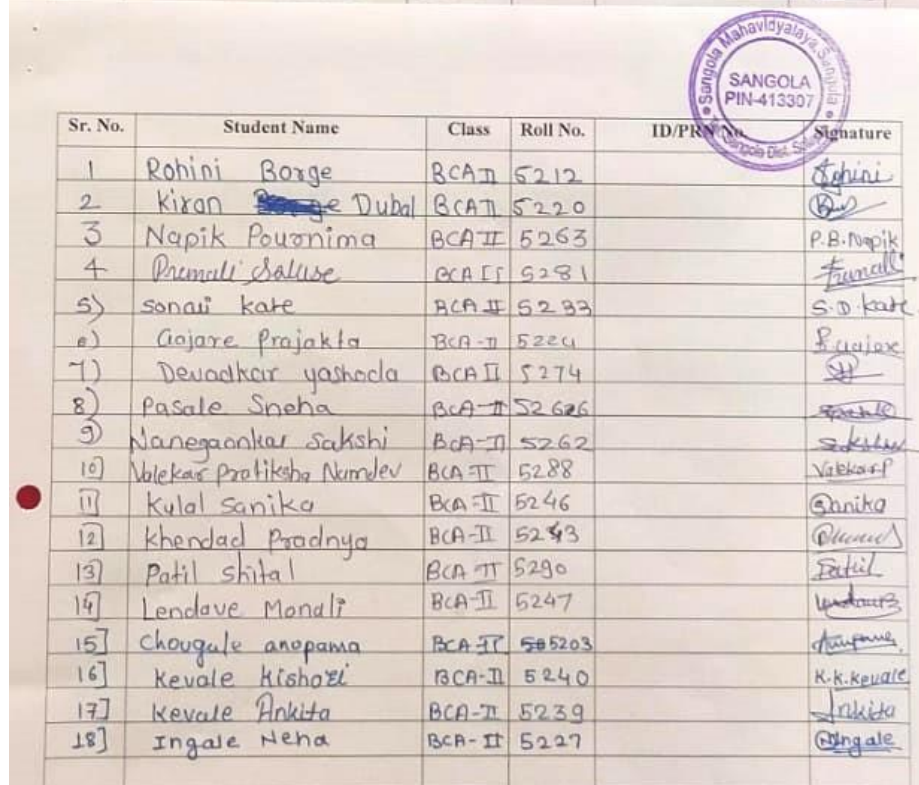 Sangola Mahavidyalaya, Sangola
SANGOLA
PIN-413307
Sangola Dist.
Sr. No. Student Name Class Roll No. ID/PRN No. Signature
1 Rohini Borge BCA II 5212 Rohini
2 Kiran Dubal BCA II 5220
3 Napik Pournima BCA II 5263 P.B. Napik
4 Premali Saluse BCA II 5281 Premali
5) sonali kate BCA II 5233 S.D. kate
6) Gojare Prajakta BCA-II 5224 P.Gajare
7) Devadkar yashoda BCA II 5274
8) Pasale Sneha BCA-II
9) Nanegaonkar Sakshi BCA-II 5262 Sakshi
10] Valekar Pratiksha Namdev BCA-II 5288 Valekar P
11] Kulal Sanika BCA-II 5246 Sanika
12] Khendad Pradnya BCA-II 5243
13] Patil Shital BCA-II 5290 Patil
14] Lendave Monali BCA-II 5247
15] Chougale anopama BCA-II 5203
16] Kevale Kishori BCA-II 5240 K.K. Kevale
17] Kevale Ankita BCA-II 5239 Ankita
18] Ingale Neha BCA-II 5227 Ningale